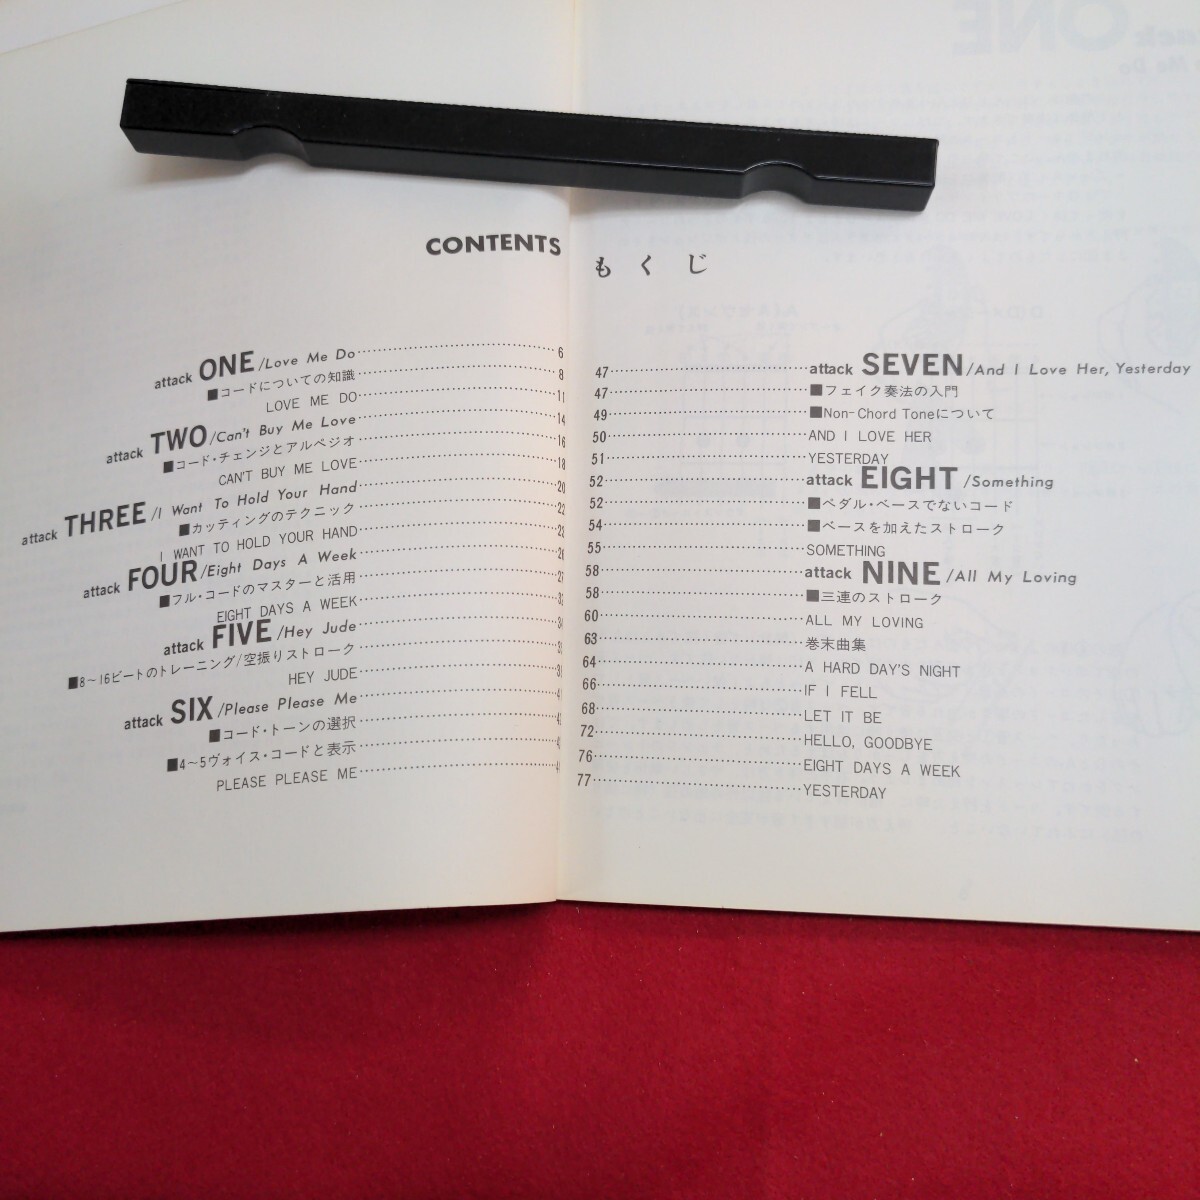 CONTENTS
もくじ
attack ONE/Love Me Do 6
■コードについての知識 8
LOVE ME DO 11
attack TWO/Can't Buy Me Love 14
■コード・チェンジとアルペジオ 16
CAN'T BUY ME LOVE 18
attack THREE/I Want To Hold Your Hand 20
■カッティングのテクニック 22
I WANT TO HOLD YOUR HAND 23
attack FOUR/Eight Days A Week
■フル・コードのマスターと活用
EIGHT DAYS A WEEK
attack FIVE/Hey Jude
■8〜16ビートのトレーニング/空振りストローク
HEY JUDE
attack SIX/Please Please Me
■コード・トーンの選択
■4〜5ヴォイス・コードと表示
PLEASE PLEASE ME
47 attack SEVEN/And I Love Her, Yesterday
47 ■フェイク奏法の入門
49 ■Non-Chord Toneについて
50 AND I LOVE HER
51 YESTERDAY
52 attack EIGHT/Something
52 ■ペダル・ベースでないコード
54 ■ベースを加えたストローク
55 SOMETHING
58 attack NINE/All My Loving
58 ■三連のストローク
60 ALL MY LOVING
63 巻末曲集
64 A HARD DAY'S NIGHT
66 IF I FELL
68 LET IT BE
72 HELLO, GOODBYE
76 EIGHT DAYS A WEEK
77 YESTERDAY